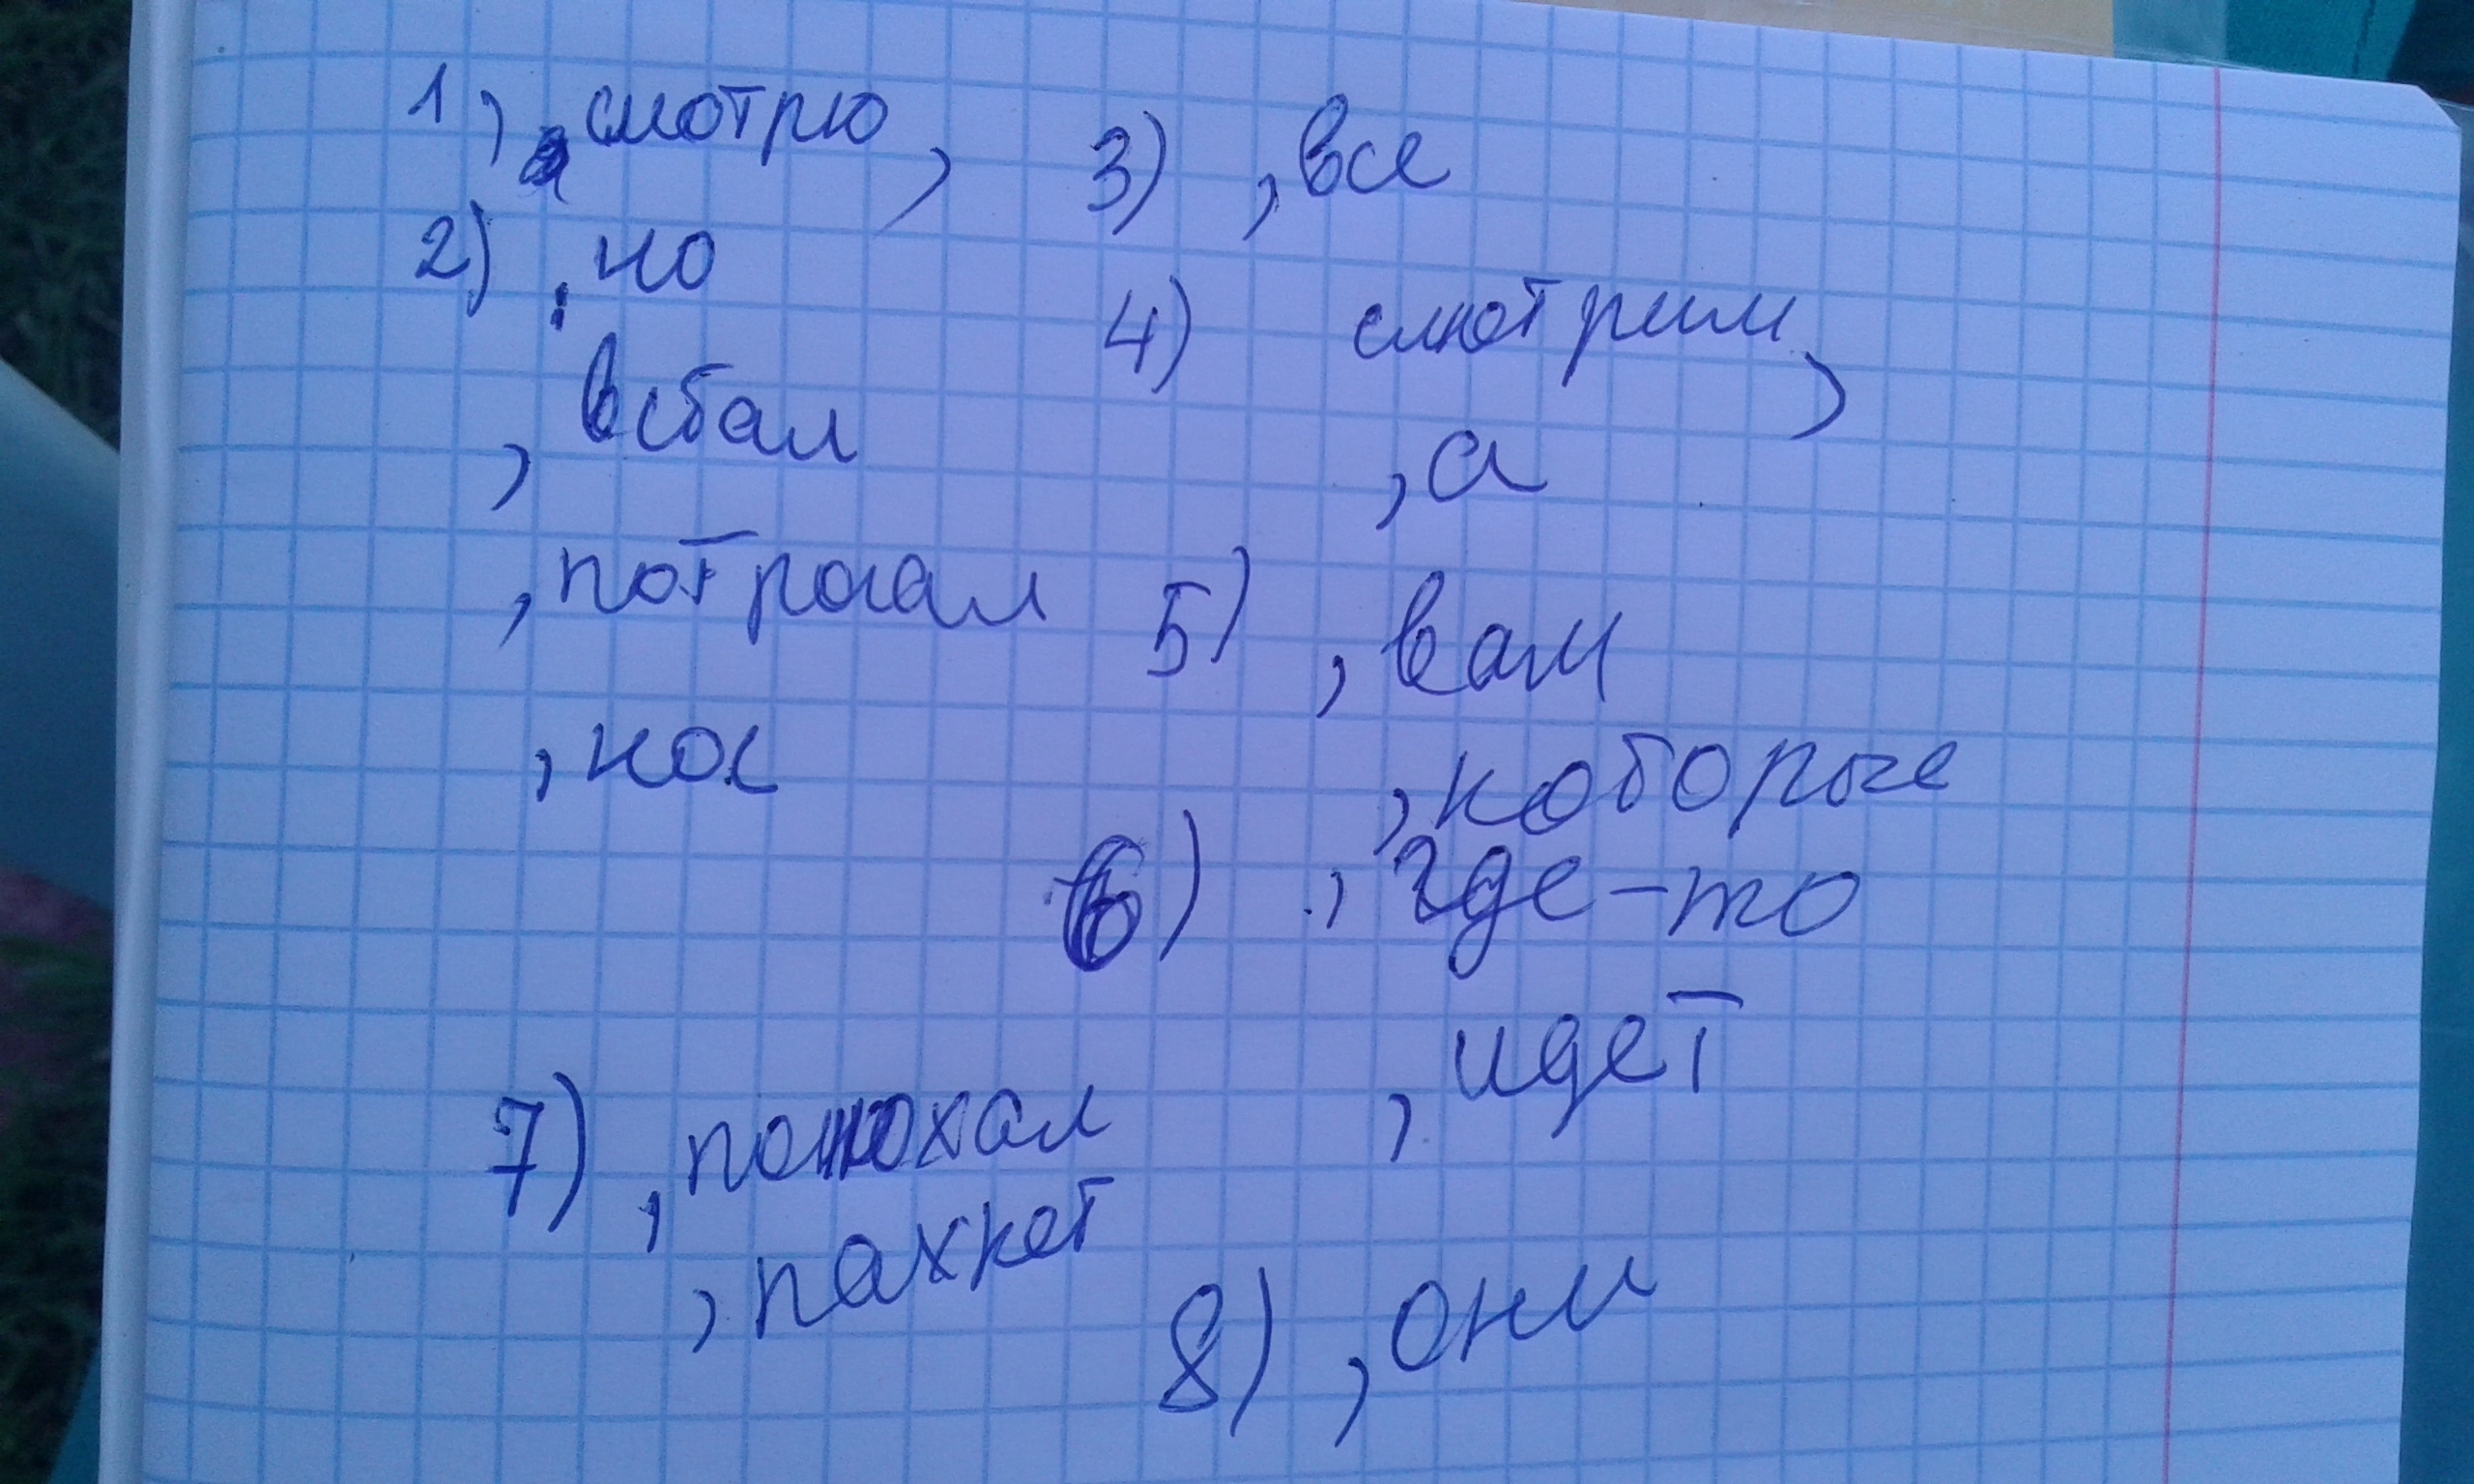 1) смотрю,
2) , но
, встал
, потрогал
, нос
3) , все
4) смотрим,
, а
5) , вам
, которые
6) , где-то
, идет
7) , понюхал
, пахнет
8) , они